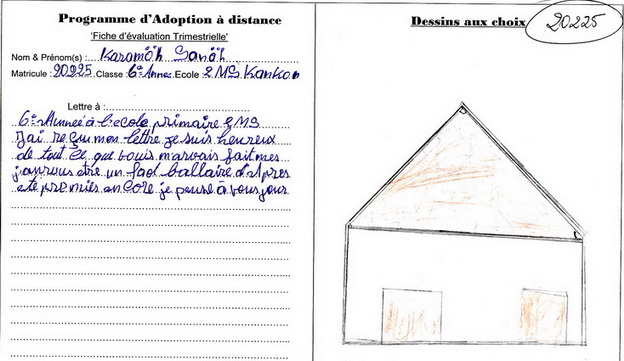 Programme d'Adoption à distance
'Fiche d'évaluation Trimestrielle'
Nom & Prénom(s) : Karamôh Sanôh
Matricule : 20225 Classe : 6e Année Ecole : 2MS Kankan
Lettre à :
6e Année à l'ecole primaire 2MS
J'ai reçu mon lettre je suis heureux
de tout ce que vous m'avais fait mes
être un
premies encore je pense à vous
Dessins aux choix
20225